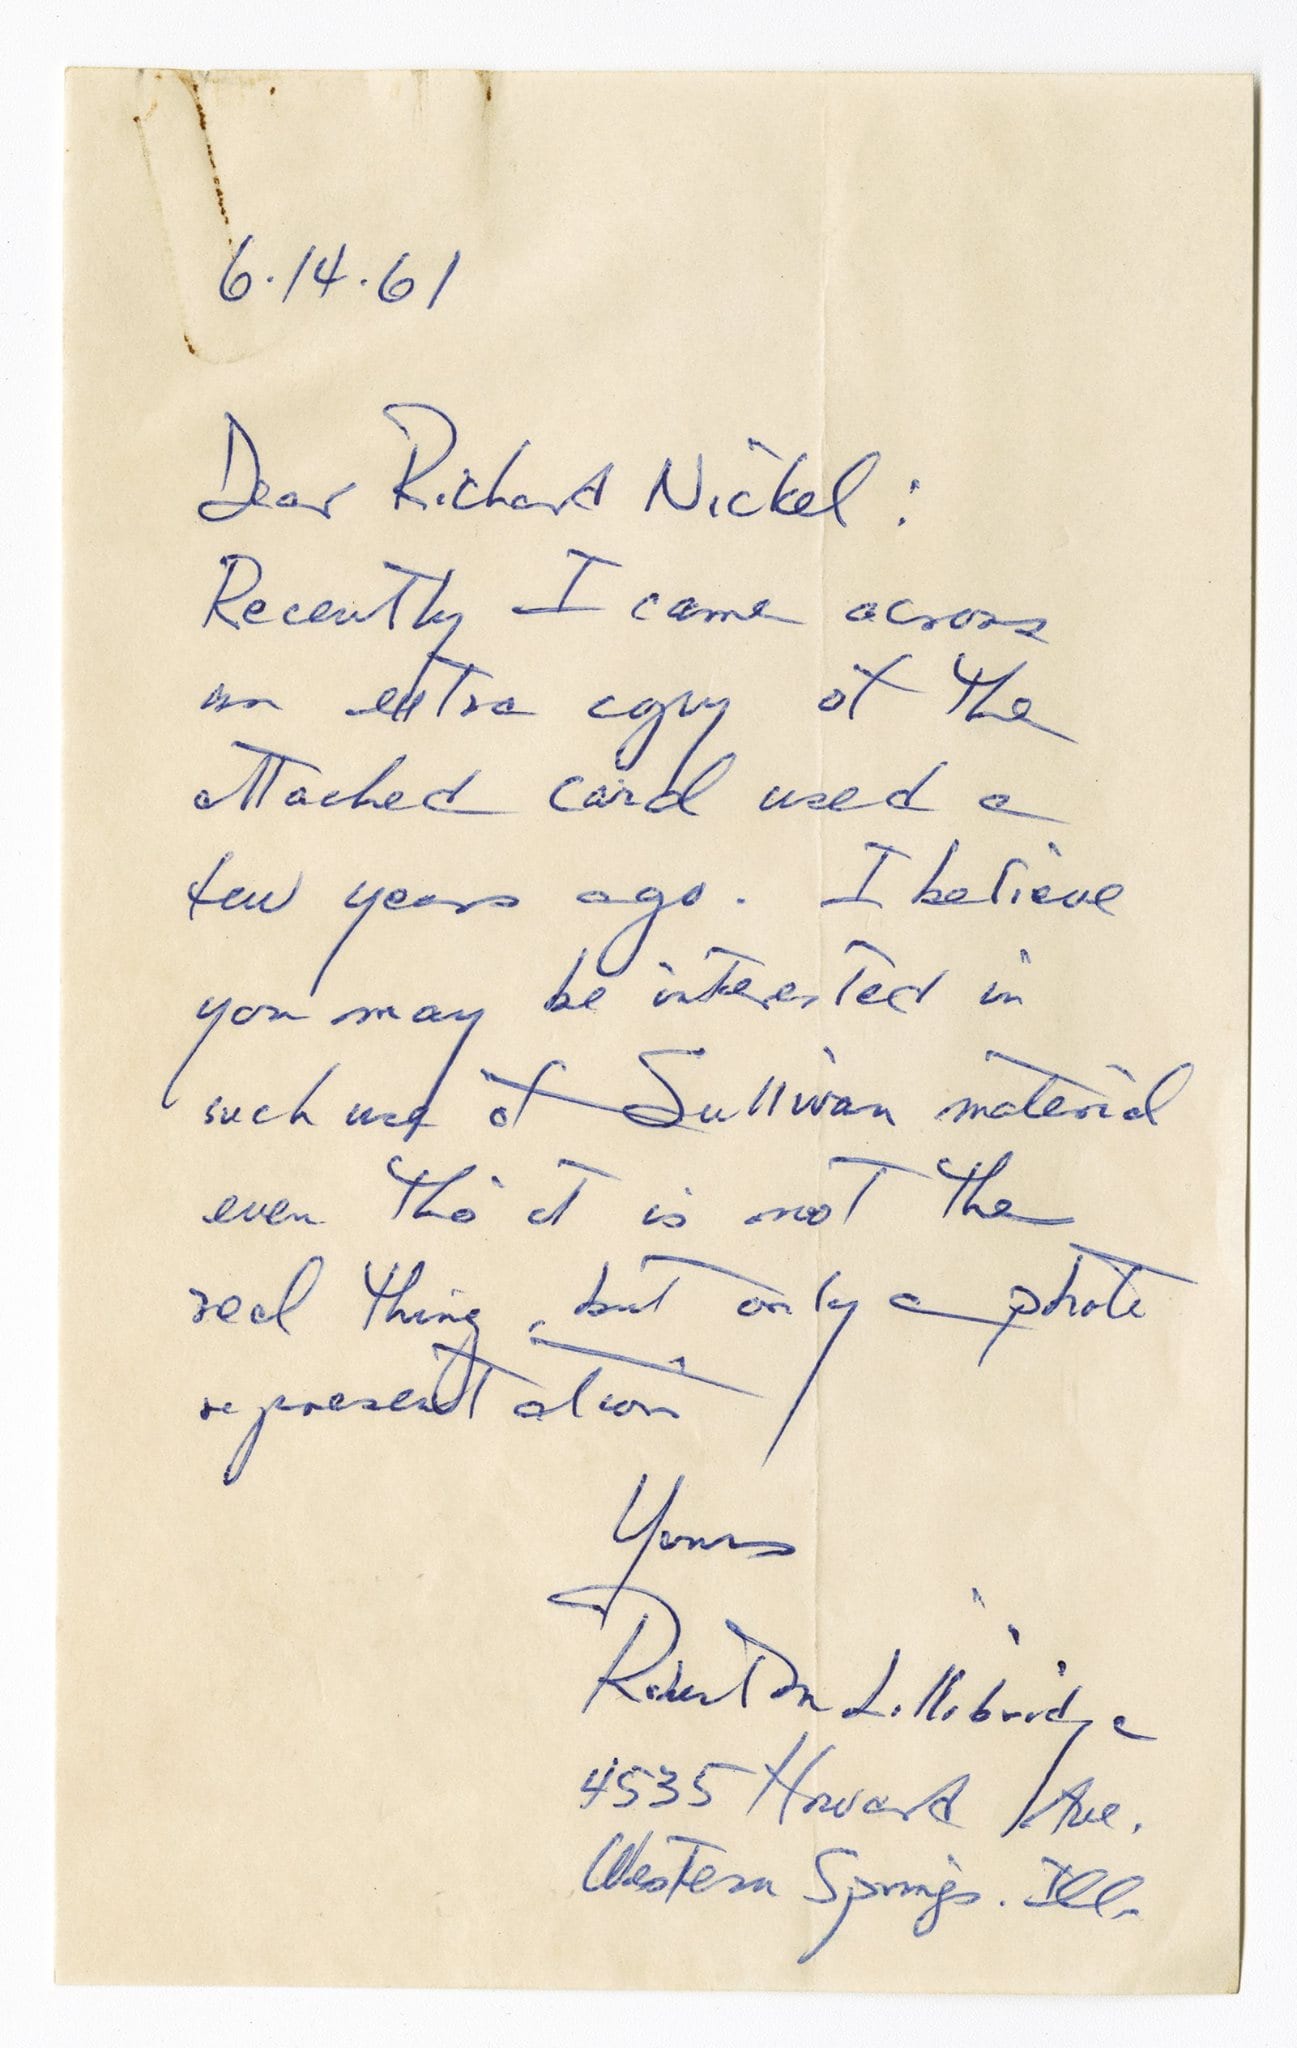 6.14.61
Dear Richard Nickel:
Recently I came across
an extra copy of the
attached card used a
few years ago. I believe
you may be interested in
such use of Sullivan material
even tho it is not the
real thing, but only a photo
representation
Yours
Robert M Lillibridge
4535 Howard Ave.
Western Springs. Ill.